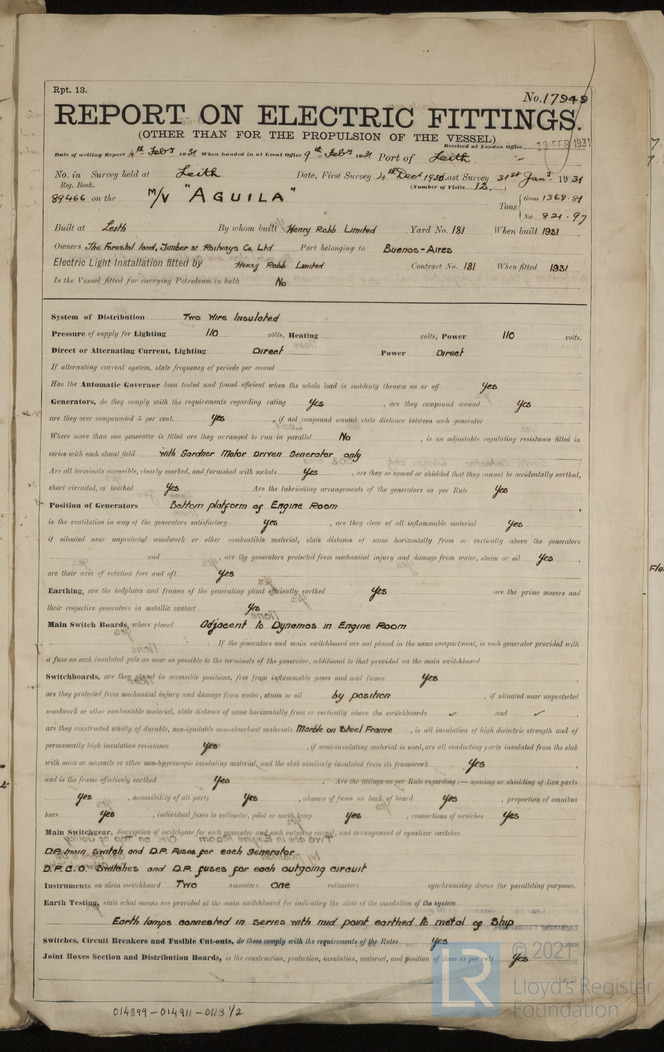 Rpt. 13.
No. 17949
REPORT ON ELECTRIC FITTINGS.
(OTHER THAN FOR THE PROPULSION OF THE VESSEL)
Received at London Office 12 FEB 1931
Date of writing Report 4th Feb 1931 When handed in at Local Office 9th Feb 1931 Port of Leith
No. in Survey held at Leith Date, First Survey 4th Dec 1930 Last Survey 31st Jan 1931
Reg. Book. (Number of Visits 12.)
89466 on the M/V "AGUILA" Tons { Gross 1368.81
Net 821.97
Built at Leith By whom built Henry Robb Limited Yard No. 181 When built 1931
Owners The Forestal land, Timber & Railways Co. Ltd Port belonging to Buenos-Aires
Electric Light Installation fitted by Henry Robb Limited Contract No. 181 When fitted 1931
Is the Vessel fitted for carrying Petroleum in bulk No
System of Distribution Two Wire Insulated
Pressure of supply for Lighting 110 volts, Heating volts, Power 110 volts.
Direct or Alternating Current, Lighting Direct Power Direct
If alternating current system, state frequency of periods per second
Has the Automatic Governor been tested and found efficient when the whole load is suddenly thrown on or off Yes
Generators, do they comply with the requirements regarding rating Yes , are they compound wound Yes
are they over compounded 5 per cent. Yes , if not compound wound state distance between each generator
Where more than one generator is fitted are they arranged to run in parallel No , is an adjustable regulating resistance fitted in
series with each shunt field with Gardner Motor Driven Generator only
Are all terminals accessible, clearly marked, and furnished with sockets Yes , are they so spaced or shielded that they cannot be accidentally earthed,
short circuited, or touched Yes Are the lubricating arrangements of the generators as per Rule Yes
Position of Generators Bottom platform of Engine Room
is the ventilation in way of the generators satisfactory Yes , are they clear of all inflammable material Yes
if situated near unprotected woodwork or other combustible material, state distance of same horizontally from or vertically above the generators
and , are the generators protected from mechanical injury and damage from water, steam or oil Yes ,
are their axes of rotation fore and aft Yes
Earthing, are the bedplates and frames of the generating plant efficiently earthed Yes are the prime movers and
their respective generators in metallic contact Yes
Main Switch Boards, where placed Adjacent to Dynamos in Engine Room
If the generators and main switchboard are not placed in the same compartment, is each generator provided with
a fuse on each insulated pole as near as possible to the terminals of the generator, additional to that provided on the main switchboard
Switchboards, are they placed in accessible positions, free from inflammable gases and acid fumes Yes ,
are they protected from mechanical injury and damage from water, steam or oil by position , if situated near unprotected
woodwork or other combustible material, state distance of same horizontally from or vertically above the switchboards ✓ and ✓ ,
are they constructed wholly of durable, non-ignitable non-absorbent materials Marble on Steel Frame , is all insulation of high dielectric strength and of
permanently high insulation resistance Yes , if semi-insulating material is used, are all conducting parts insulated from the slab
with mica or micanite or other non-hygroscopic insulating material, and the slab similarly insulated from its framework Yes ,
and is the frame effectively earthed Yes . Are the fittings as per Rule regarding:— spacing or shielding of live parts
Yes , accessibility of all parts Yes , absence of fuses on back of board Yes , proportion of omnibus
bars Yes , individual fuses to voltmeter, pilot or earth lamp Yes , connections of switches Yes
Main Switchgear, description of switchgear for each generator and each outgoing circuit, and arrangement of equalizer switches
D.P. main Switch and D.P. Fuses for each Generator
D.P. C.O. Switches and D.P. fuses for each outgoing circuit
Instruments on main switchboard Two ammeters one voltmeters synchronising device for paralleling purposes.
Earth Testing, state what means are provided at the main switchboard for indicating the state of the insulation of the system
Earth lamps connected in series with mid point earthed to metal of Ship
Switches, Circuit Breakers and Fusible Cut-outs, do these comply with the requirements of the Rules Yes
Joint Boxes Section and Distribution Boards, is the construction, protection, insulation, material, and position of these as per rule Yes
© 2021
LR
Lloyd's Register
Foundation
014899-014911-0113 1/2